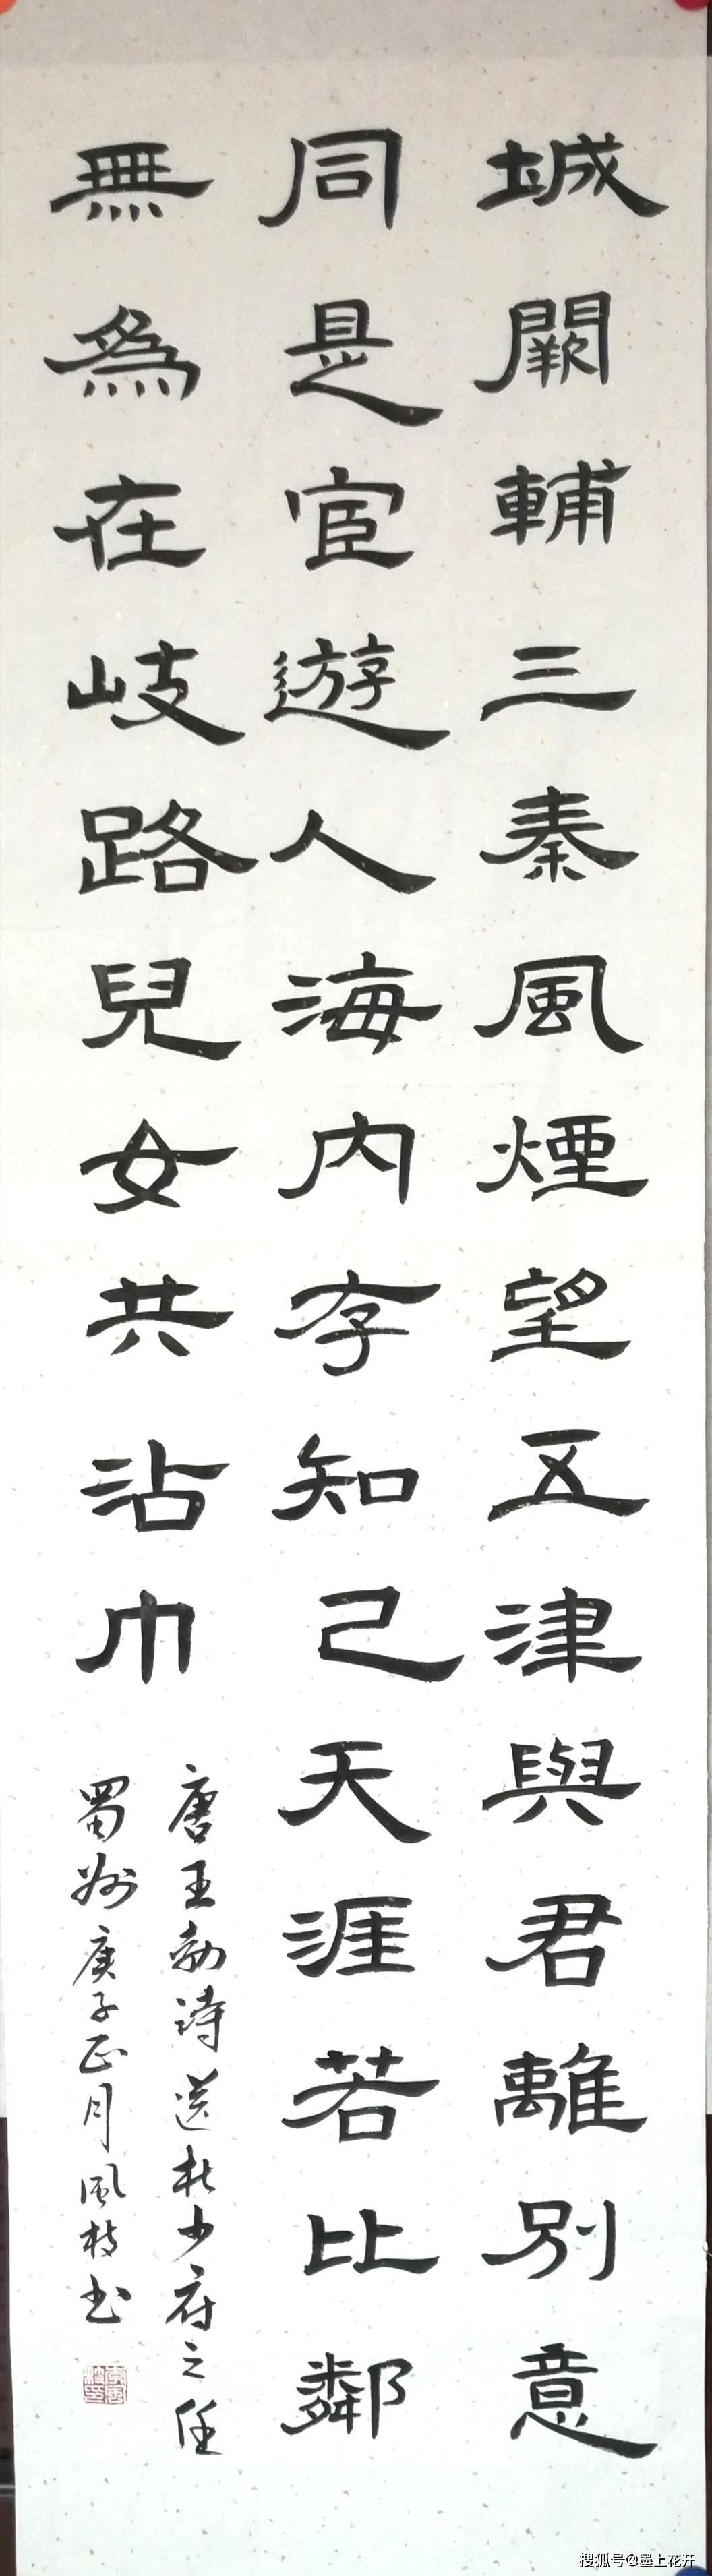 城闕輔三秦風煙望五津與君離別意
同是宦遊人海內存知己天涯若比鄰
無為在岐路兒女共沾巾
唐王勃詩送杜少府之任
蜀州庚子正月風枝书
搜狐号@墨上花开